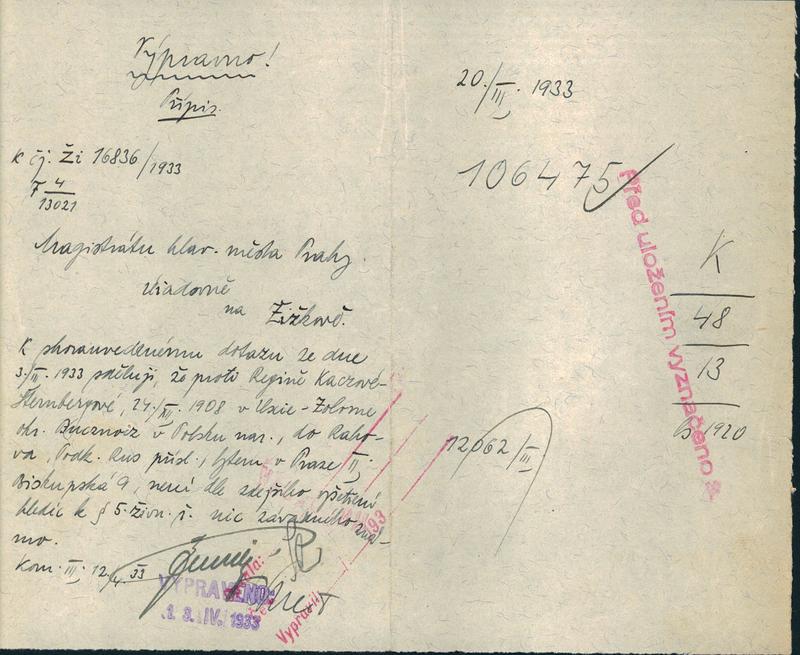 Výpravno!
Přípis.
K čj. Ži 16836/1933
F 4/13021
Magistrátu hlav. města Prahy.
úřadovně
na Žižkově.
K shorauvedenému dotazu ze dne
3./II. 1933 sděluji, že proti Regině Kaczové-
Sternbergové, 1908 v
okr. v Polsku nar., do Raho-
va, Podk. Rus přísl., bytem v Praze II.,
Biskupská 9, není dle zdejšího vyšetření
hledíc k § 5. živn. ř. nic závadného zná-
mo.
Kom. III. 12/4. 33
VYPRAVENO:
13. IV. 1933
Vypravil:
20./III. 1933
106475
Před uložením vyznačeno
K
48
13
1920
12062/III.